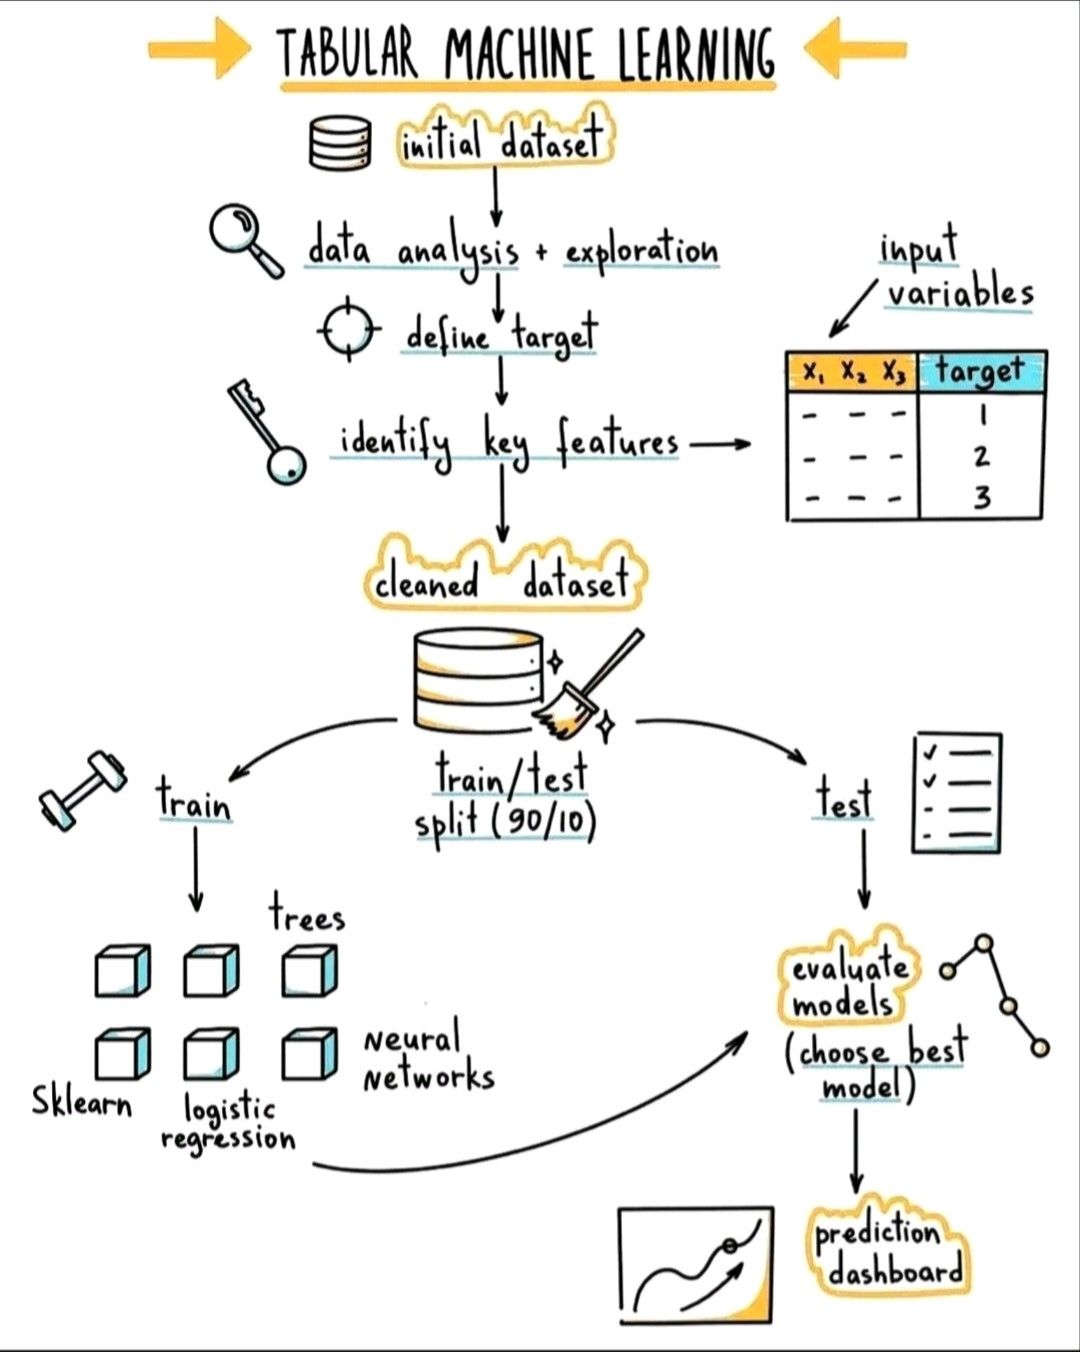 TABULAR MACHINE LEARNING
initial dataset
data analysis + exploration
define target
identify key features
input
variables
x₁ x₂ x₃ target
- - - 1
- - - 2
- - - 3
cleaned dataset
train/test
split (90/10)
train
trees
Neural
Networks
Sklearn
logistic
regression
test
evaluate
models
(choose best
model)
prediction
dashboard